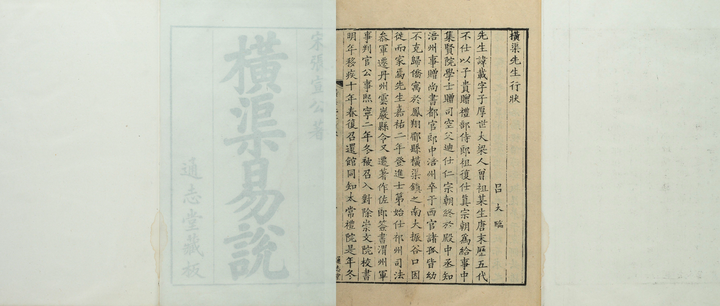 橫渠先生行狀
呂大臨
先生諱載字子厚世大梁人曾祖某生唐末歷五代
不仕以子貴贈禮部侍郎祖復仕真宗朝為給事中
集賢院學士贈司空父迪仕仁宗朝終於殿中丞知
涪州事贈尚書都官郎中涪州卒于西官諸孤皆幼
不克歸僑寓於鳳翔郿縣橫渠鎮之南大振谷口因
徙而家焉先生嘉祐二年登進士第始仕祁州司法
叅軍遷丹州雲巖縣令又遷著作佐郎簽書渭州軍
事判官公事熙寧二年冬被召入對除崇文院校書
明年移疾十年春復召還館同知太常禮院是年冬
宋張宣公著
橫渠易說
通志堂藏板